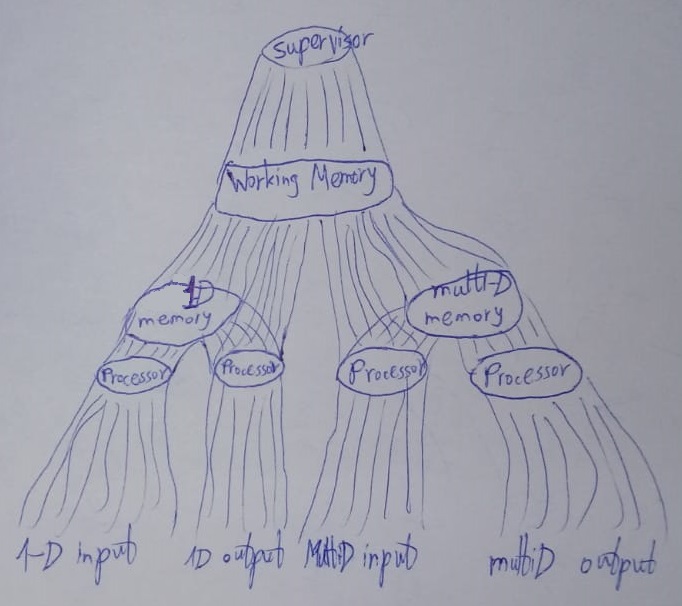 Supervisor
Working Memory
1D
memory
multi-D
memory
Processor
Processor
Processor
Processor
1-D input
1D output
MultiD input
multiD output